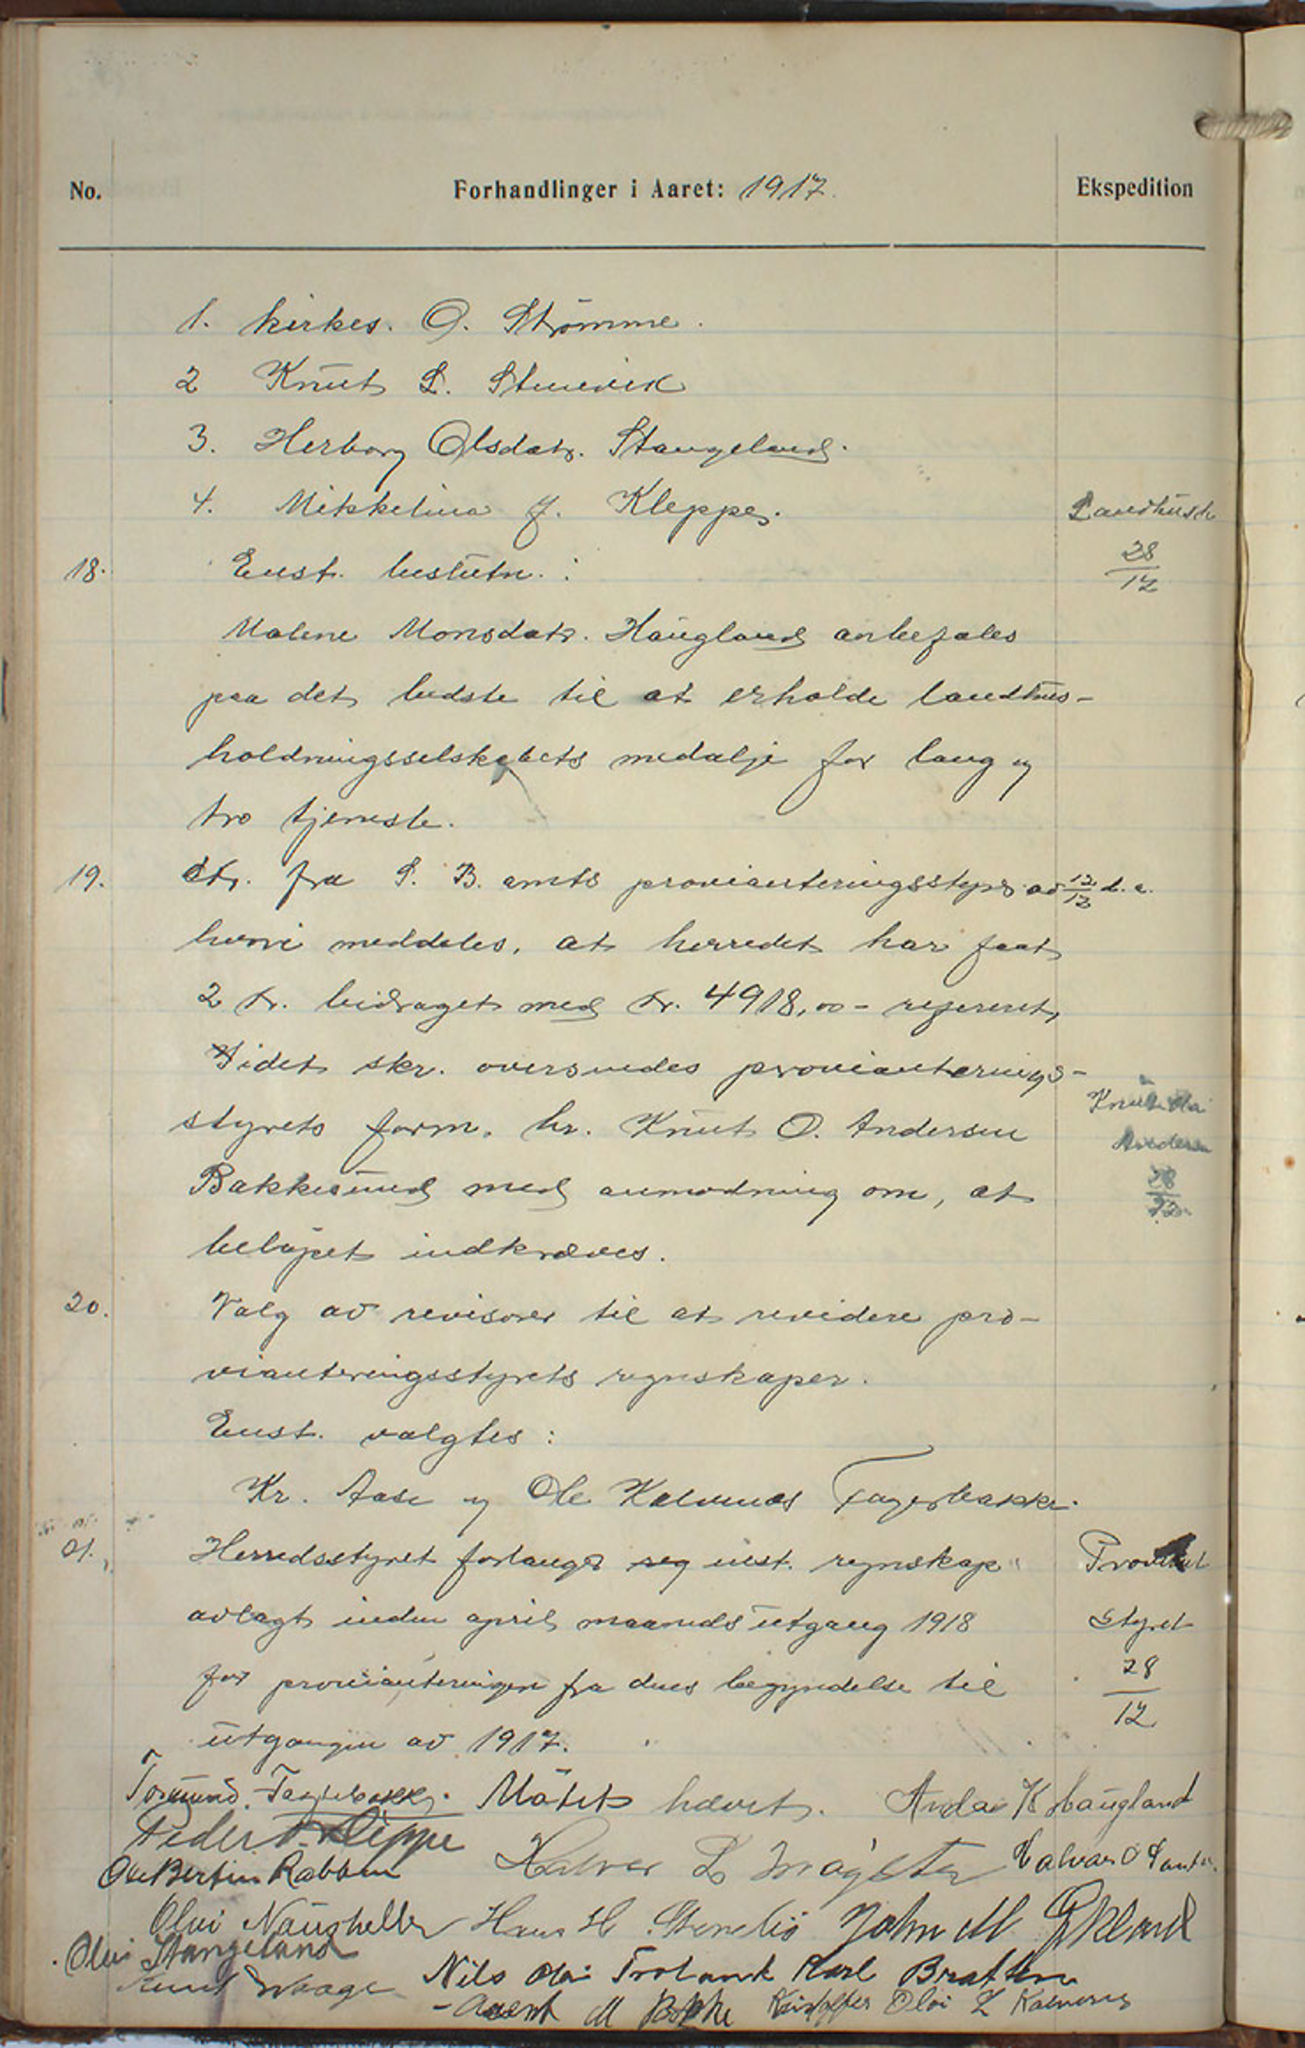 No.
Forhandlinger i Aaret: 1917.
Ekspedition
1. kirkes. O. Strømme.
2 Knut L. Stenevik
3. Herborg Olsdatr. Stangeland.
4. Mikkelina J. Kleppe.
Landhush
28/12
18. Enst. beslutn.:
Malene Monsdatr. Haugland anbefales
paa det bedste til at erholde landhus-
holdningsselskabets medalje for lang og
tro tjeneste.
19. Skr. fra S. B. amts provianteringsstyre av 12/12 d.a.
hvori meddeles, at herredet har faat
2 kr. bidraget med kr. 4918,00 - referert,
Idet skr. oversendes provianterings-
styrets form. hr. Knut O. Andersen
Bakkesund med anmodning om, at
beløpet indkræves.
Knut Olai
Andersen
28/12
20. Valg av revisorer til at revidere pro-
vianteringsstyrets regnskaper.
Enst. valgtes:
Kr. Aase og Ole Kalvenes Fagerbakke.
21. Herredsstyret forlanger seg enst. regnskap
avlagt inden april maaneds utgang 1918
for provianteringen fra dens begyndelse til
utgangen av 1917.
Proviant
Styret
28/12
Tormund Fagerbakke. Møtet hævet. Anda K Haugland
Peder Kleppe
Ole Bertin Rabben Halvor L Møgster Halvar O
Olai Naustheller Hans H. Stenevik John M Økland
Olai Stangeland
Knut Waage Nils Olai Troland Karl Bratten
M Bakke Kristoffer Olai L Kalvenes